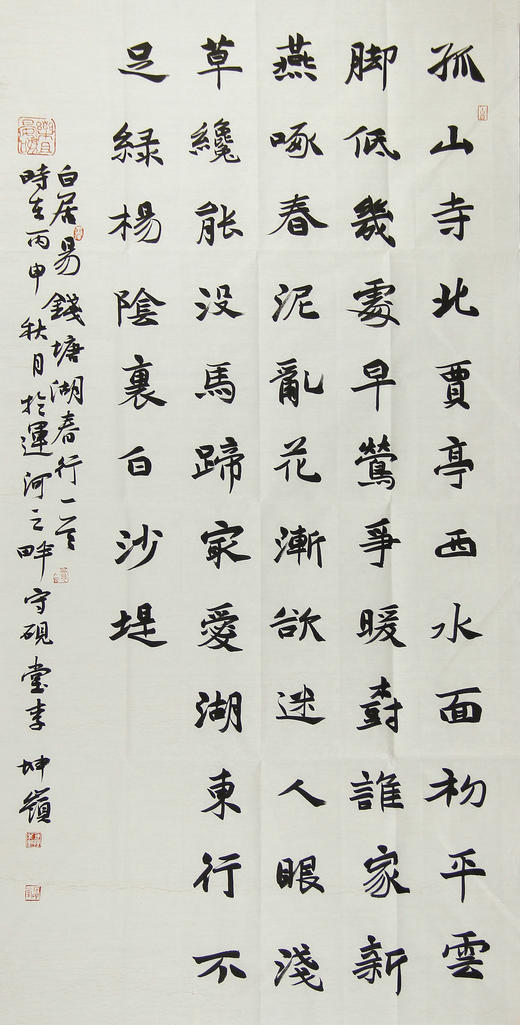 孤山寺北賈亭西水面初平雲
脚低幾處早鶯爭暖樹誰家新
燕啄春泥亂花漸欲迷人眼淺
草纔能没馬蹄最愛湖東行不
足緑楊陰裏白沙堤
白居易錢塘湖春行一首
時在丙申秋月於運河之畔守硯堂李坤嶺